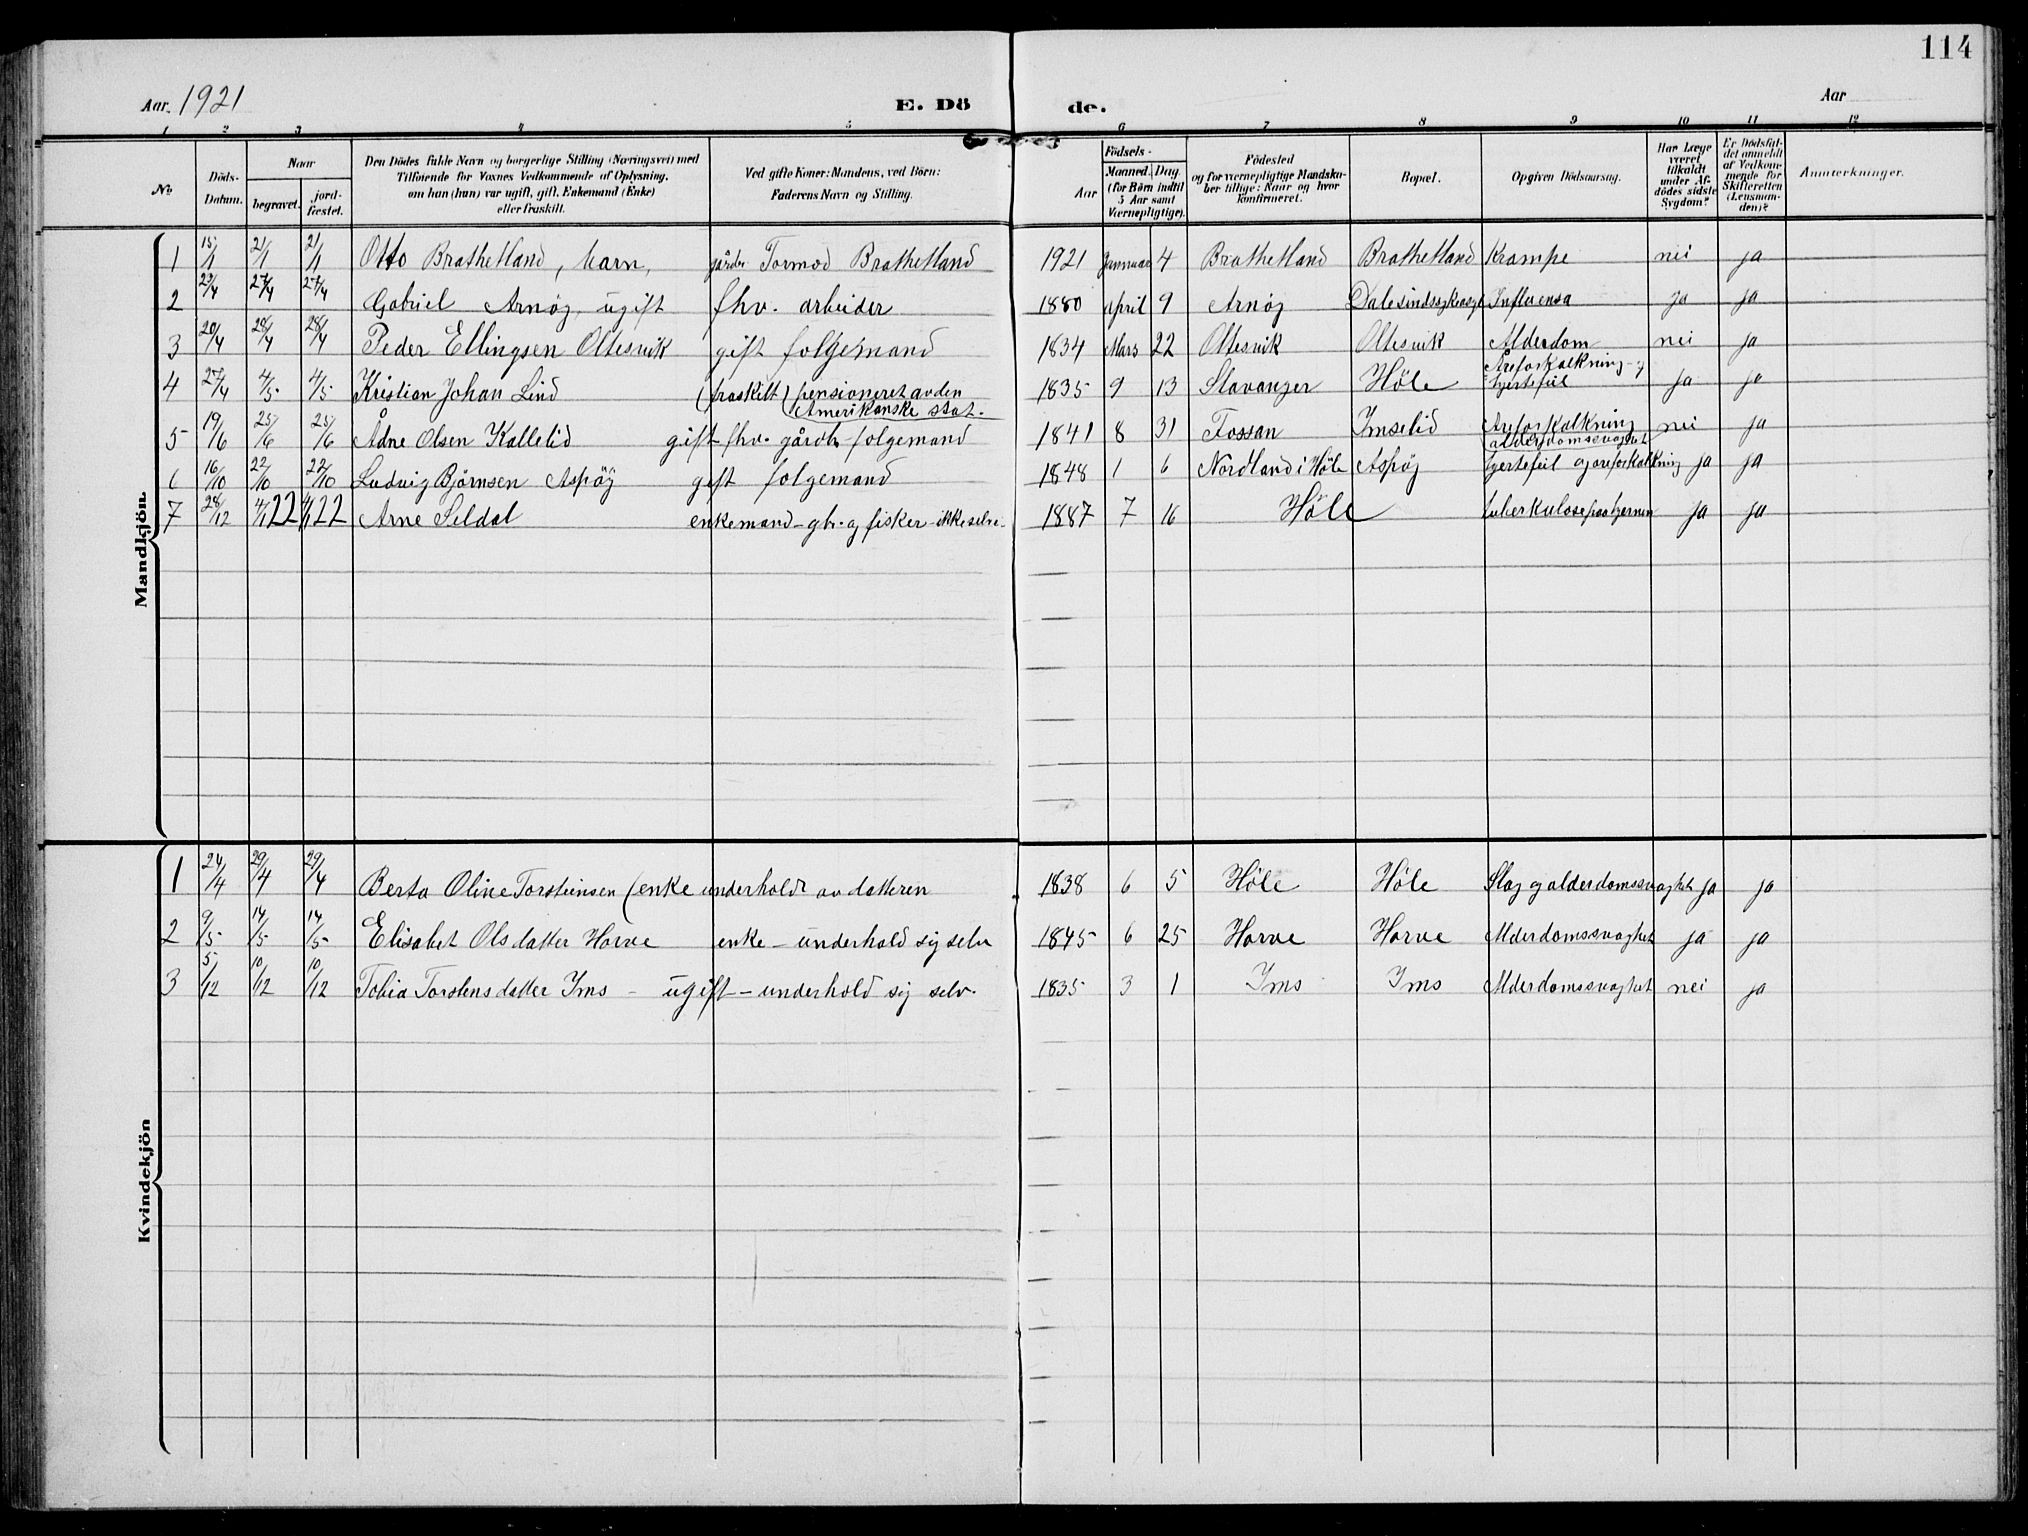 114
Aar 1921 E. Dö de. Aar
1 2 3 4 5 6 7 8 9 10 11 12
No Döds-Datum. Naar begravet. jord-fæstet. Den Dödes fulde Navn og borgerlige Stilling (Næringsvei) med Tilföiende for Voxnes Vedkommende af Oplysning, om han (hun) var ugift, gift, Enkemand (Enke) eller fraskilt. Ved gifte Koner: Mandens, ved Börn: Faderens Navn og Stilling. Aar Födsels- Maaned. Dag. (for Börn indtil 5 Aar samt Værnepligtige). Födested og for værnepligtige Mandska-ber tillige: Naar og hvor Konfirmeret. Bopæl. Opgiven Dödsaarsag. Har Læge været tilkaldt under Af-dödes sidste Sygdom? Er Dödsfal-det anmeldt af Vedkom-mende for Skifteretten (Lensman-den)? Anmærkninger.
Mandkjön
1 15/1 21/1 21/1 Otto Brathetland, barn, gårdbr Tormod Brathetland 1921 Januar 4 Brathetland Brathetland Krampe nei ja
2 23/4 27/4 27/4 Gabriel Arnøy, ugift fhv. arbeider 1880 april 9 Arnøy Dale sindssykeasyl Influensa ja ja
3 20/4 28/4 28/4 Peder Ellingsen Oltesvik gift folgemand 1834 Mars 22 Oltesvik Oltesvik Alderdom nei ja
4 27/4 4/5 4/5 Kristian Johan Lind (fraskilt) pensioneret av den Amerikanske stat. 1835 9 13 Stavanger Høle Åreforkalkning og hjertefeil ja ja
5 19/6 25/6 25/6 Ådne Olsen Kallelid gift fhv. gårdbr folgemand 1841 8 31 Fossan Imselid Areforkalkning alderdomssvaghet nei ja
6 16/10 22/10 22/10 Ludvig Bjørnsen Aspøy gift folgemand 1848 1 6 Nordland i Høle Aspøy hjertefeil og areforkalkning ja ja
7 28/12 4/1 22 4/1 22 Arne Seldal enkemand - gbr. og fisker - ikke selve. 1887 7 16 Høle tuberkulose paa hjernen ja ja
Kvindekjön
1 24/4 29/4 29/4 Berta Oline Torsteinsen (enke underholdt av datteren 1838 6 5 Høle Høle Slag og alderdomssvaghet ja ja
2 9/5 14/5 14/5 Elisabet Olsdatter Horve enke - underhold sig selv 1845 6 25 Horve Horve Alderdomssvaghet ja ja
3 5/12 10/12 10/12 Tobia Torstensdatter Ims - ugift - underhold sig selv. 1835 3 1 Ims Ims Alderdomssvaghet nei ja